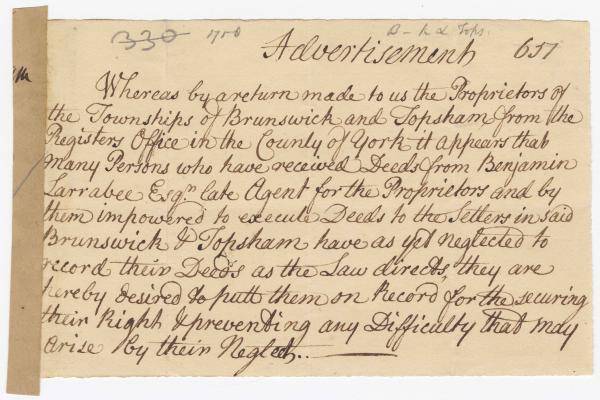 330 1750 B - k & Tops.
Advertisement 657
Whereas by a return made to us the Proprietors of
the Townships of Brunswick and Topsham from the
Registers Office in the County of York it appears that
many Persons who have received Deeds from Benjamin
Larrabee Esqr. late Agent for the Proprietors and by
them impowered to execute Deeds to the Setlers in said
Brunswick & Topsham have as yet neglected to
record their Deeds as the Law directs, they are
hereby desired to putt them on Record for the securing
their Right & preventing any Difficulty that may
arise by their Neglect..